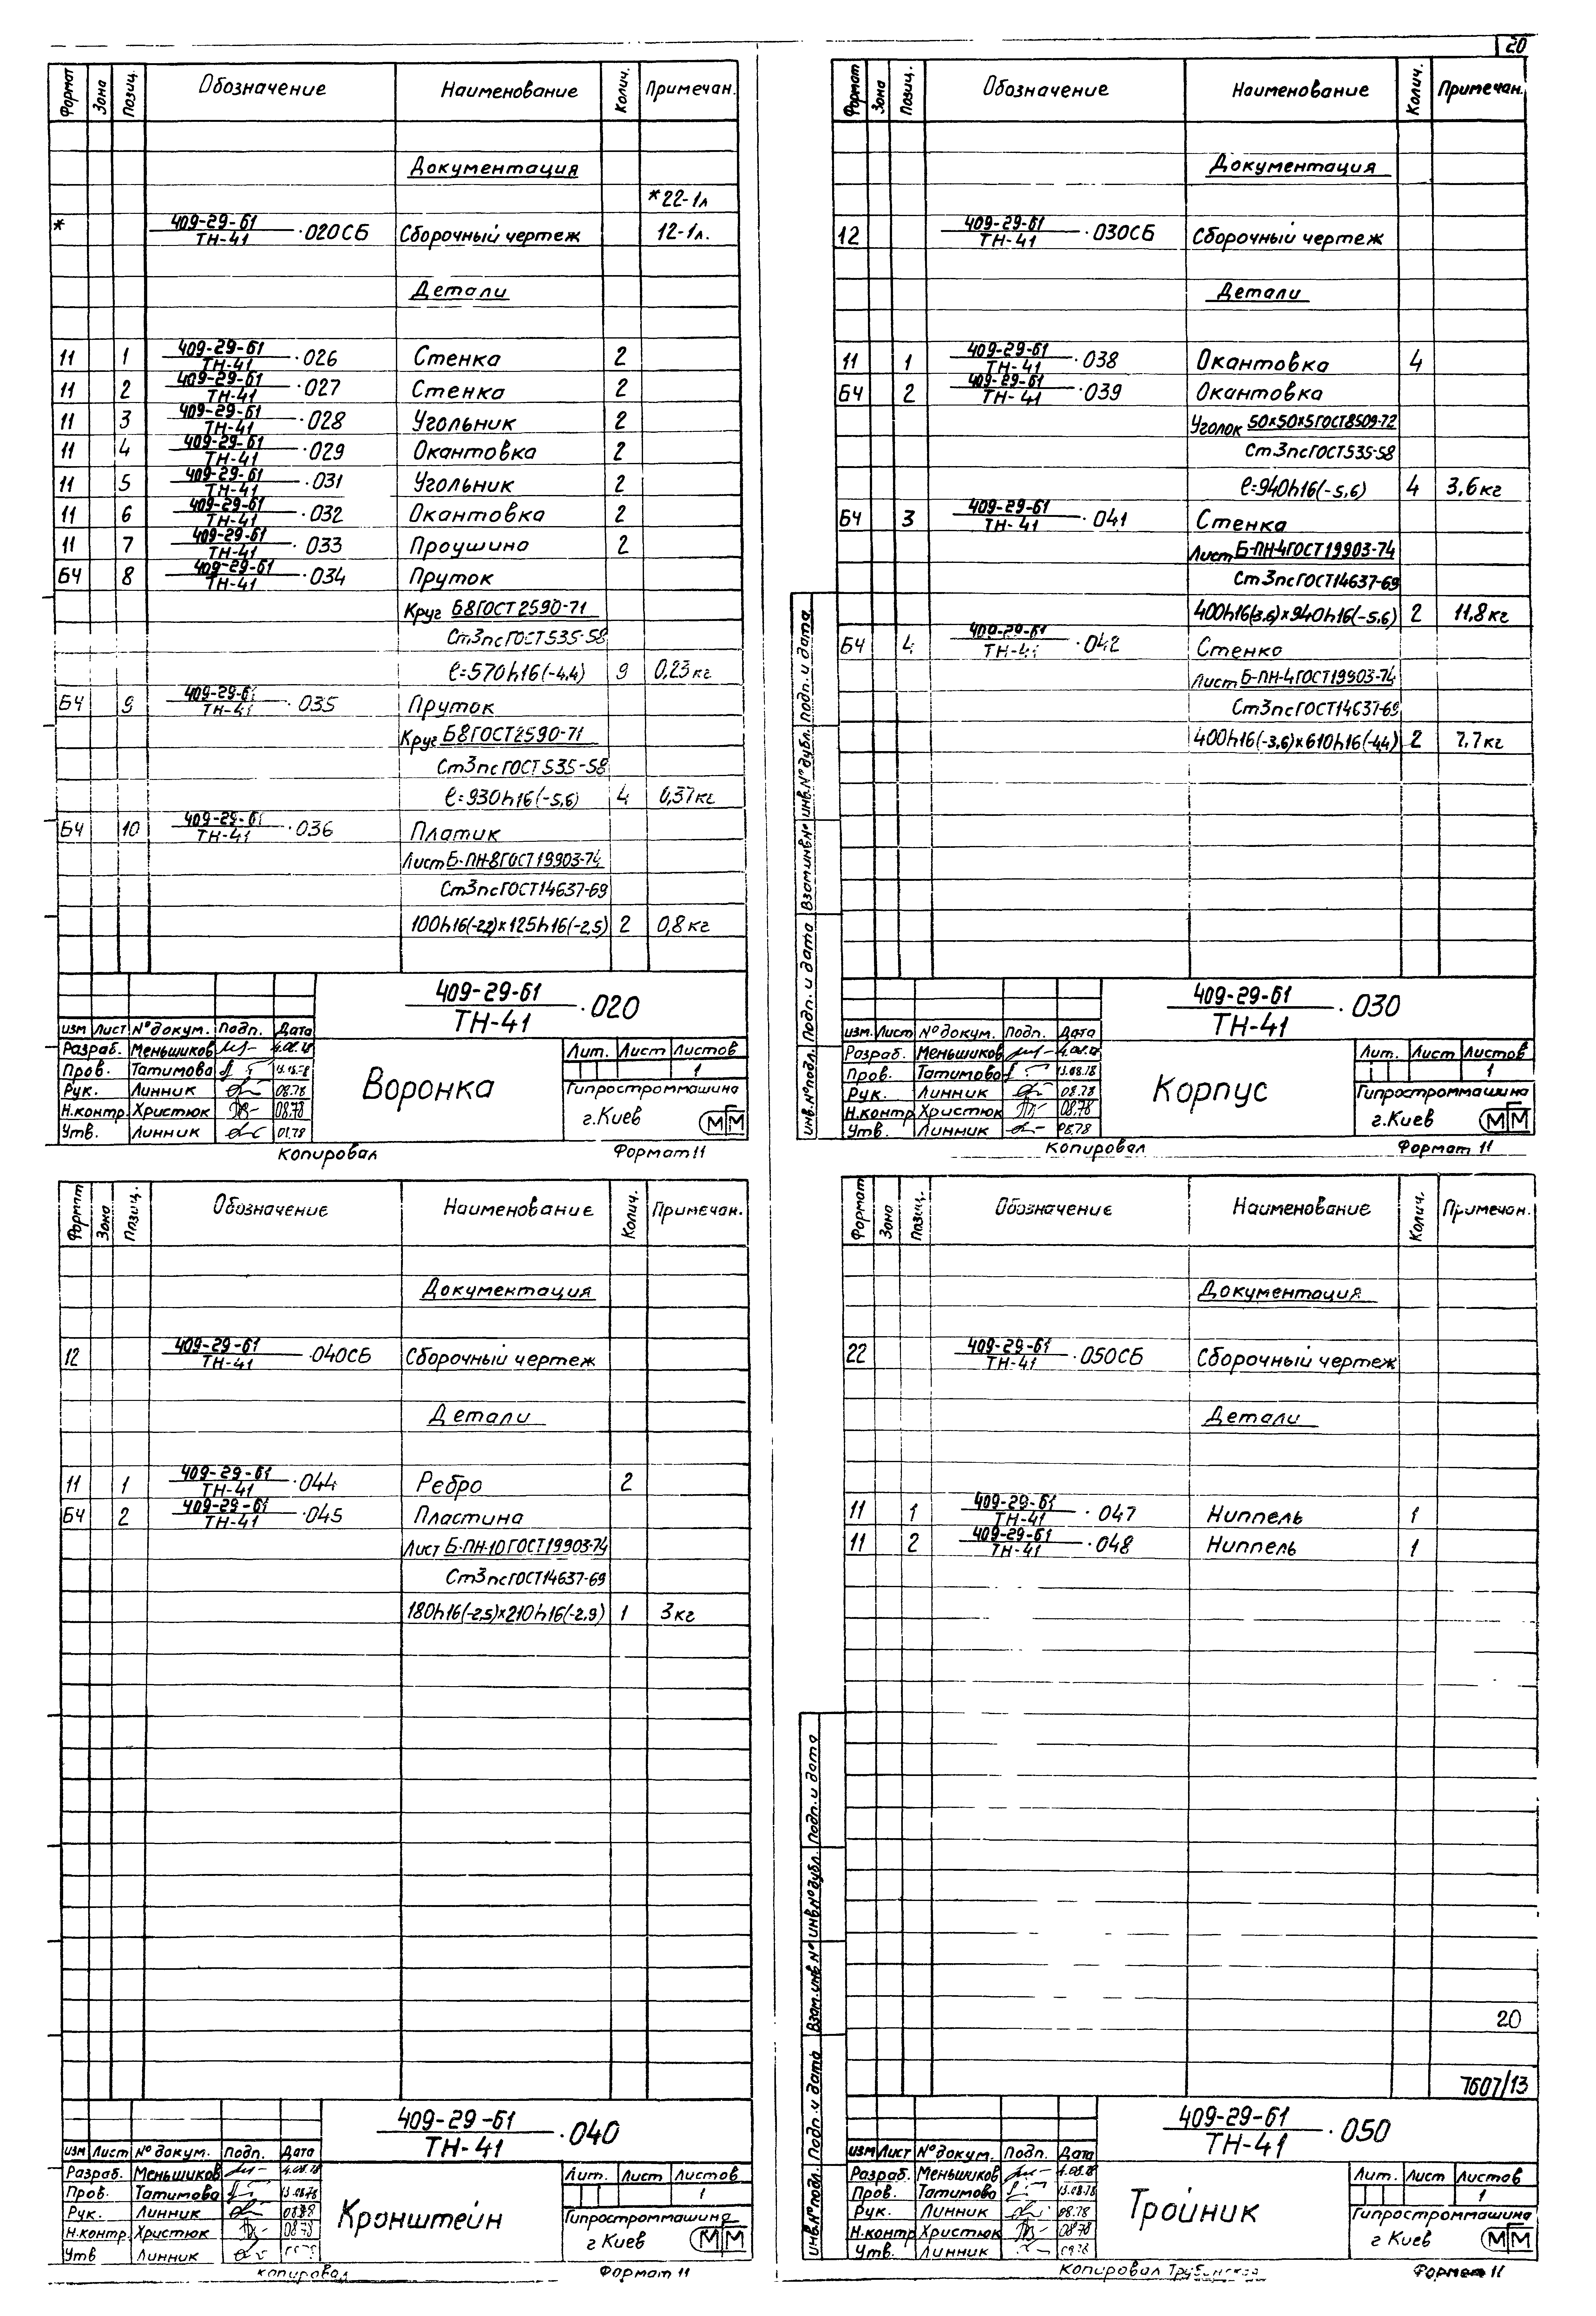 20
Формат Зона Позиц. Обозначение Наименование Колич. Примечан.
Документация
*22-1л
* 409-29-61/ТН-41 ·020СБ Сборочный чертеж 12-1л.
Детали
11 1 409-29-61/ТН-41 ·026 Стенка 2
11 2 409-29-61/ТН-41 ·027 Стенка 2
11 3 409-29-61/ТН-41 ·028 Угольник 2
11 4 409-29-61/ТН-41 ·029 Окантовка 2
11 5 409-29-61/ТН-41 ·031 Угольник 2
11 6 409-29-61/ТН-41 ·032 Окантовка 2
11 7 409-29-61/ТН-41 ·033 Проушина 2
БЧ 8 409-29-61/ТН-41 ·034 Пруток
Круг Б8ГОСТ2590-71
Ст3псГОСТ535-58
ℓ=570h16(-4,4) 9 0,23кг
БЧ 9 409-29-61/ТН-41 ·035 Пруток
Круг Б8ГОСТ2590-71
Ст3псГОСТ535-58
ℓ=930h16(-5,6) 4 0,37кг
БЧ 10 409-29-61/ТН-41 ·036 Платик
Лист Б-ПН-8ГОСТ19903-74
Ст3псГОСТ14637-69
100h16(-2,2)×125h16(-2,5) 2 0,8кг
409-29-61/ТН-41 ·020
изм Лист №докум. Подп. Дата
Разраб. Меньшиков 4.08.78
Пров. Татимова
Рук. Линник 08.78
Н.контр. Христюк 08.78
Утв. Линник
Воронка
Лит. Лист Листов
1
Гипростроммашина
г.Киев
ММ
Копировал Формат 11
Формат Зона Позиц. Обозначение Наименование Колич. Примечан.
Документация
12 409-29-61/ТН-41 ·030СБ Сборочный чертеж
Детали
11 1 409-29-61/ТН-41 ·038 Окантовка 4
БЧ 2 409-29-61/ТН-41 ·039 Окантовка
Уголок 50×50×5ГОСТ8509-72
Ст3псГОСТ535-58
ℓ=940h16(-5,6) 4 3,6кг
БЧ 3 409-29-61/ТН-41 ·041 Стенка
Лист Б-ПН-4ГОСТ19903-74
Ст3псГОСТ14637-69
400h16(3,6)×940h16(-5,6) 2 11,8кг
БЧ 4 409-29-61/ТН-41 ·042 Стенка
Лист Б-ПН-4ГОСТ19903-74
Ст3псГОСТ14637-69
400h16(-3,6)×610h16(-4,4) 2 7,7кг
Инв.№подл. Подп. и дата Взам.инв.№ Инв.№дубл. Подп. и дата
409-29-61/ТН-41 ·030
изм. Лист №докум. Подп. Дата
Разраб. Меньшиков 4.08.78
Пров. Татимова 13.08.78
Рук. Линник 08.78
Н.контр. Христюк 08.78
Утв. Линник 08.78
Корпус
Лит. Лист Листов
1
Гипростроммашина
г.Киев
ММ
Копировал Формат 11
Формат Зона Позиц. Обозначение Наименование Колич. Примечан.
Документация
12 409-29-61/ТН-41 ·040СБ Сборочный чертеж
Детали
11 1 409-29-61/ТН-41 ·044 Ребро 2
БЧ 2 409-29-61/ТН-41 ·045 Пластина
Лист Б-ПН-10ГОСТ19903-74
Ст3псГОСТ14637-69
180h16(-2,5)×210h16(-2,9) 1 3кг
409-29-61/ТН-41 ·040
изм Лист №докум. Подп. Дата
Разраб. Меньшиков 4.08.78
Пров. Татимова 13.08.78
Рук. Линник 08.78
Н.контр. Христюк 08.78
Утв Линник
Кронштейн
Лит. Лист Листов
1
Гипростроммашина
г Киев
ММ
Копировал Формат 11
Формат Зона Позиц. Обозначение Наименование Колич. Примечан.
Документация
22 409-29-61/ТН-41 ·050СБ Сборочный чертеж
Детали
11 1 409-29-61/ТН-41 ·047 Ниппель 1
11 2 409-29-61/ТН-41 ·048 Ниппель 1
20
7607/13
Инв.№подл. Подп. и дата Взам.инв.№ Инв.№дубл. Подп. и дата
409-29-61/ТН-41 ·050
изм Лист №докум. Подп. Дата
Разраб. Меньшиков 4.08.78
Пров. Татимова 13.08.78
Рук. Линник 08.78
Н.контр Христюк 08.78
Утв. Линник
Тройник
Лит. Лист Листов
1
Гипростроммашина
г.Киев
ММ
Копировал Формат 11